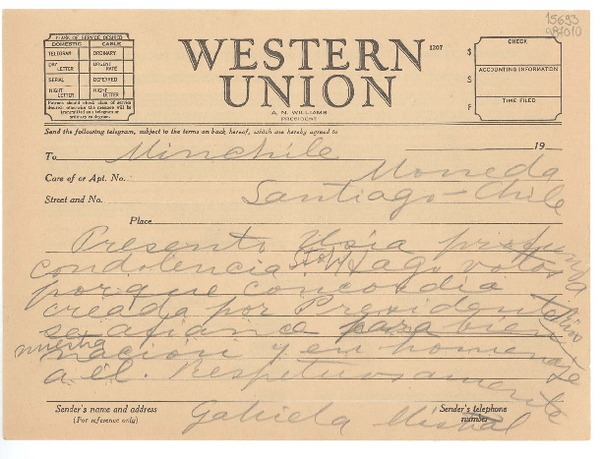 15693
987010
CLASS OF SERVICE DESIRED
DOMESTIC CABLE
TELEGRAM ORDINARY
DAY LETTER URGENT RATE
SERIAL DEFERRED
NIGHT LETTER NIGHT LETTER
Patrons should check class of service
desired; otherwise the message will be
transmitted as a telegram or
ordinary cablegram.
WESTERN
UNION
1207
A. N. WILLIAMS
PRESIDENT
$
S
F
CHECK
ACCOUNTING INFORMATION
TIME FILED
Send the following telegram, subject to the terms on back hereof, which are hereby agreed to
To Minchile 19
Care of or Apt. No. Moneda
Street and No. Santiago - Chile
Place
Presento Usía profunda
condolencia Stop Hago votos
porque concordia
creada por Presidente
se afiance para bien
nuestra nación y en homenaje
a él. Respetuosamente
Sender's name and address
(For reference only)
Gabriela Mistral
Sender's telephone
number